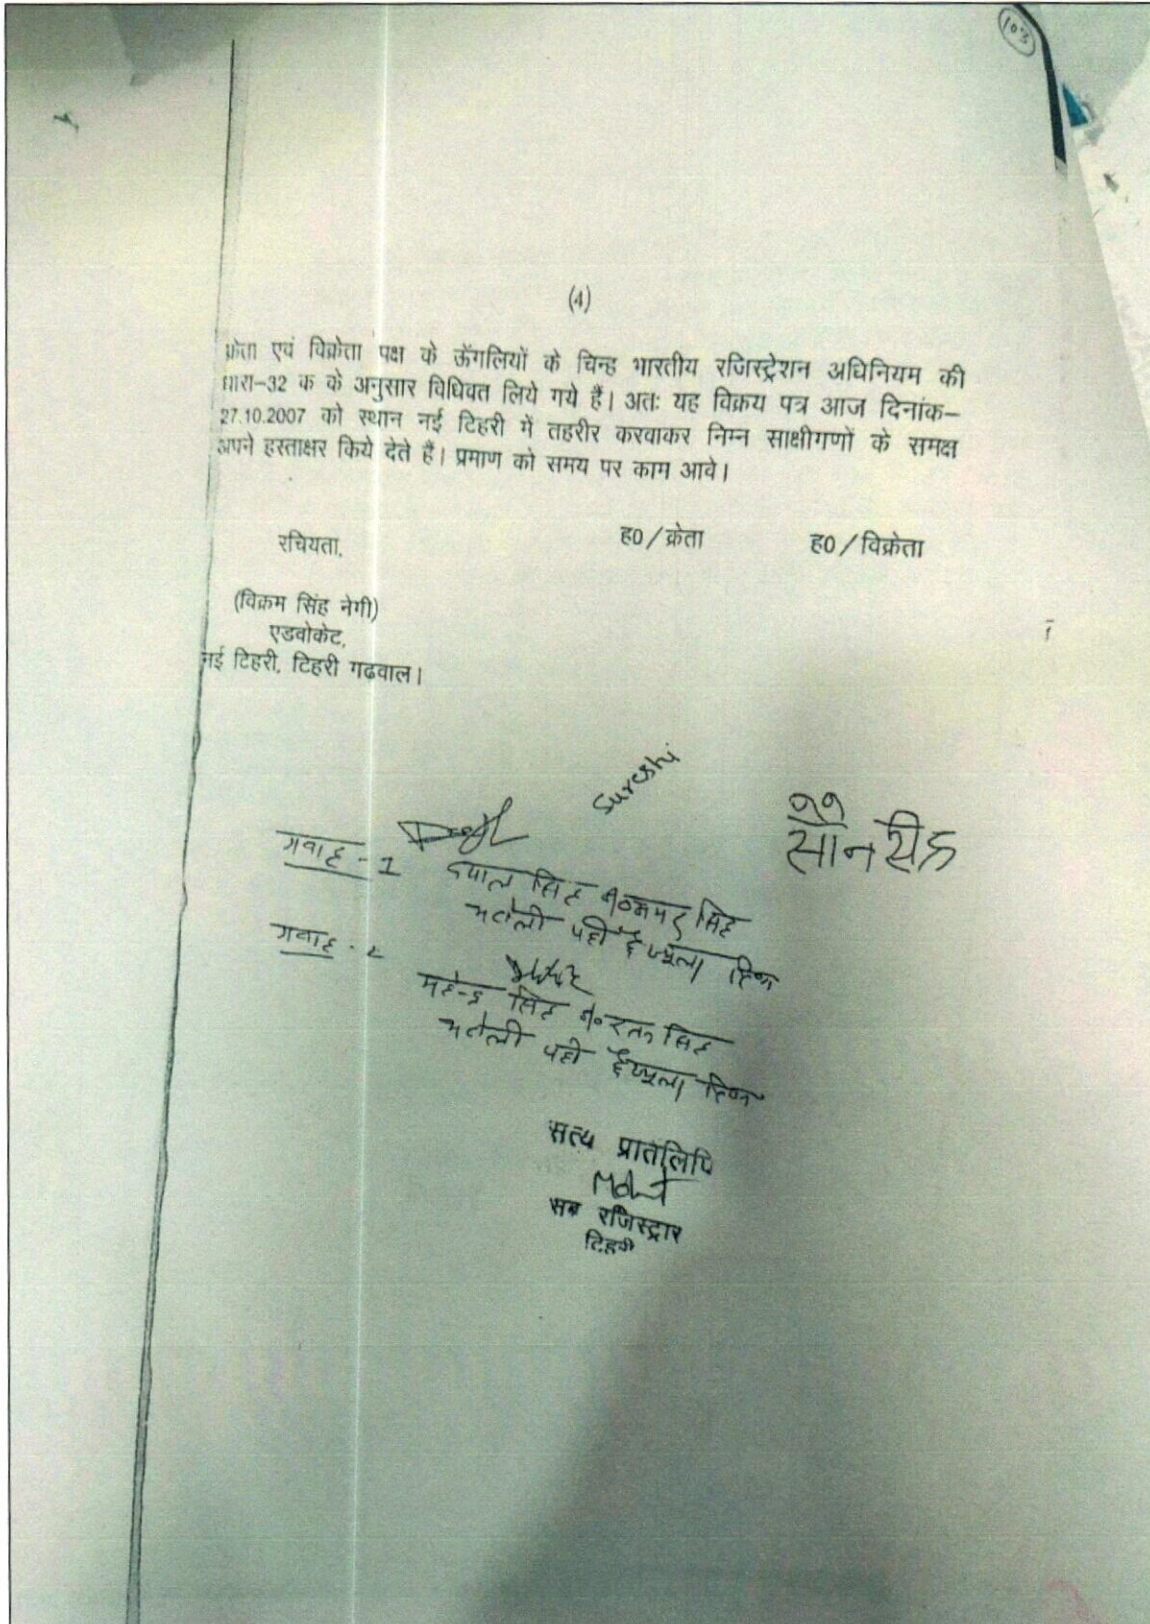 103
(4)
क्रेता एवं विक्रेता पक्ष के ऊँगलियों के चिन्ह भारतीय रजिस्ट्रेशन अधिनियम की
धारा-32 क के अनुसार विधिवत लिये गये हैं। अतः यह विक्रय पत्र आज दिनांक-
27.10.2007 को स्थान नई टिहरी में तहरीर करवाकर निम्न साक्षीगणों के समक्ष
अपने हस्ताक्षर किये देते हैं। प्रमाण को समय पर काम आवे।
रचियता, ह0/क्रेता ह0/विक्रेता
(विक्रम सिंह नेगी)
एडवोकेट,
नई टिहरी, टिहरी गढवाल।
Sureshi
गवाह - 1
दयाल सिंह सिंह
पट्टी
गवाह - 2
महेन्द्र सिंह रतन सिंह
पट्टी
सत्य प्रतिलिपि
सब रजिस्ट्रार
टिहरी